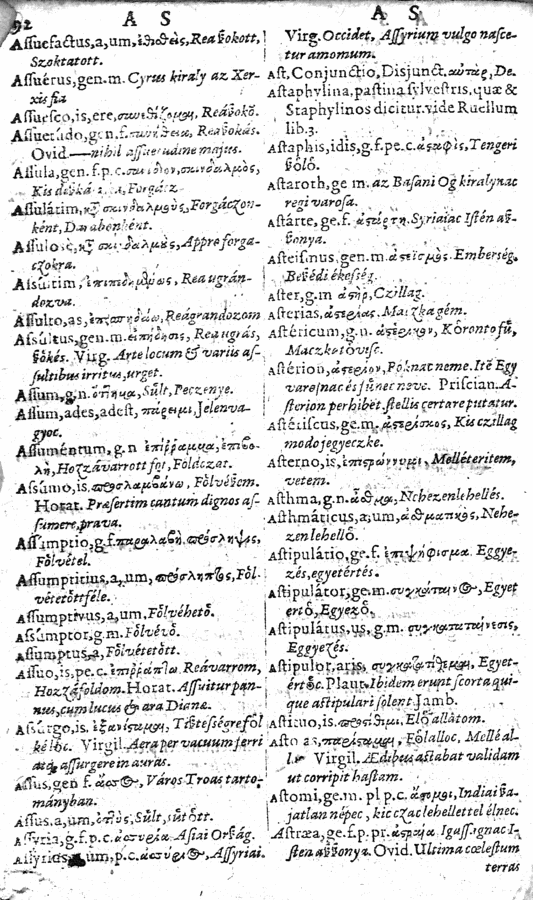 92 A S
Assuefactus, a, um, ἐθισθεὶς, Reaſʒokott,
Szoktatott.
Assuérus, gen. m. Cyrus kiraly az Xer-
xis fia
Assuesco, is, ere, συνεθίζομαι, Reaſʒokŏ.
Assuetúdo, gen. f. συνήθεια, Reaſʒokás.
Ovid.—nihil assuetudine majus.
Assula, gen. f. p. c.
Kis
Assulátim, Forgáczon-
ként, Darabonként.
Appro forga-
czokra.
Assultim, Rea ugrán-
dozva.
Assulto, as, ἐπιπηδάω, Reágrandozom
Assultus, gen. m. ἐπιπήδησις, Rea ugrás,
ſʒőkés. Virg. Arte locum & variis as-
sultibus irritus, urget.
Assum, g. n. ὄπτημα, Sůlt, Peczenye.
Assum, ades, adest, πάρειμι, Jelen va-
gyoc.
Assumentum, g. n. ἐπίῤῥαμμα,
Hozzávarrott folt, Foldczat.
Assúmo, is, προσλαμβάνω, Fölvéſʒem.
Horat. Præsertim cautum dignos as-
sumere, prava.
Assumptio, g. f. παραλαβὴ, πρόσληψις,
Fŏlvétel.
Assumptitius, a, um, πρόσληπτος, Fŏl-
vétetŏttféle.
Assumptivus, a, um. Fŏlvéhetŏ.
Assúmptor, g. m. Fŏlvévŏ.
Assumptus, a, Fŏlvétetŏtt.
Assuo, is, pe. c. ἐπιῤῥάπτω Reávarrom,
Hozzáfoldom. Horat. Assuitur pan-
nus, cum lucus & ara Dianæ.
Assúrgo, is. ἐξανίσταμαι, Tiſʒtességre fŏl
kéloc. Virgil. Aera per vacuum ferri
atq; assurgere in auras.
Assus, gen f. ἄσσος, Város Troas tarto-
mányban.
Assus, a, um, ὀπτὸς, Sůlt, sůtŏtt.
Assyria, g. f. p. c. ἀσσυρία Asiai Orſʒág.
Assyrius, a, um, p. c. ἀσσύριος, Assyriai.
A S
Virg. Occidet, Assyrium vulgo nasce-
tur amomum.
Ast, Conjunctio, Disjunct. αὐτὰρ, De.
Astaphylina, pastina sylvestris, quæ &
Staphylinos dicitur. vide Ruellum
lib. 3.
Astaphis, idis, g. f. pe. c. ἀσταφὶς, Tengeri
ſʒŏlŏ.
Astaroth, ge m. az Basani Og kiralynac
regi varosa.
Astárte, ge. f. ἀστάρτη. Syriaiac Istén aſʒ-
ſʒonya.
Asteismus, gen. m. ἀστεϊσμὸς. Emberség,
Beſʒédi ékesség.
Aster, g. m ἀστὴρ, Czillag.
Asterias, ἀστερίας. Maczkagém.
Astéricum, g. n. ἀστέρικον, Kŏrontofů,
Maczkatŏvisc.
Astérion, ἀστέριον, Póknac neme. Itē Egy
varosnac és fůnec neve. Priscian. A-
sterion perhibet stellis certare putatur.
Astéricus, ge. m. ἀστερίσκος, Kis czillag
modo jegyeczke.
Asterno, is, ἐπιστρώννυμι, Melléteritem,
vetem.
Asthma, g. n. ἄσθμα, Nehezen lehellés.
Asthmáticus, a, um, ἀσθματικὸς, Nehe-
zen lehellŏ.
Astipulátio, ge. f. ἐπιψήφισμα. Eggye-
zés, egyetértés.
Astipulátor, ge. m. συγκάταινος, Egyet
értŏ, Egyezŏ.
Astipulátus, us, g. m. συγκαταίνεσις,
Eggyezés.
Astipulor, aris, Egyet-
értŏc. Plaut. Ibidem erunt scorta qui-
que astipulari solent. Jamb.
Astituo, is. προστίθημι, Elŏ allàtom.
Asto as, παρίσταμαι, Fŏlalloc, Mellé al-
l Virgil. Ædibus astabat validam
ut corripit hastam.
Astomi, ge. m. pl p. c. ἄστομοι, Indiai ſʒa-
jatlan népec, kic czac lehellettel élnec.
Astræa, ge. f. p. pr. ἀστραία Igassagnac I-
sten aſʒſʒonya. Ovid. Ultima cœlestum
terras